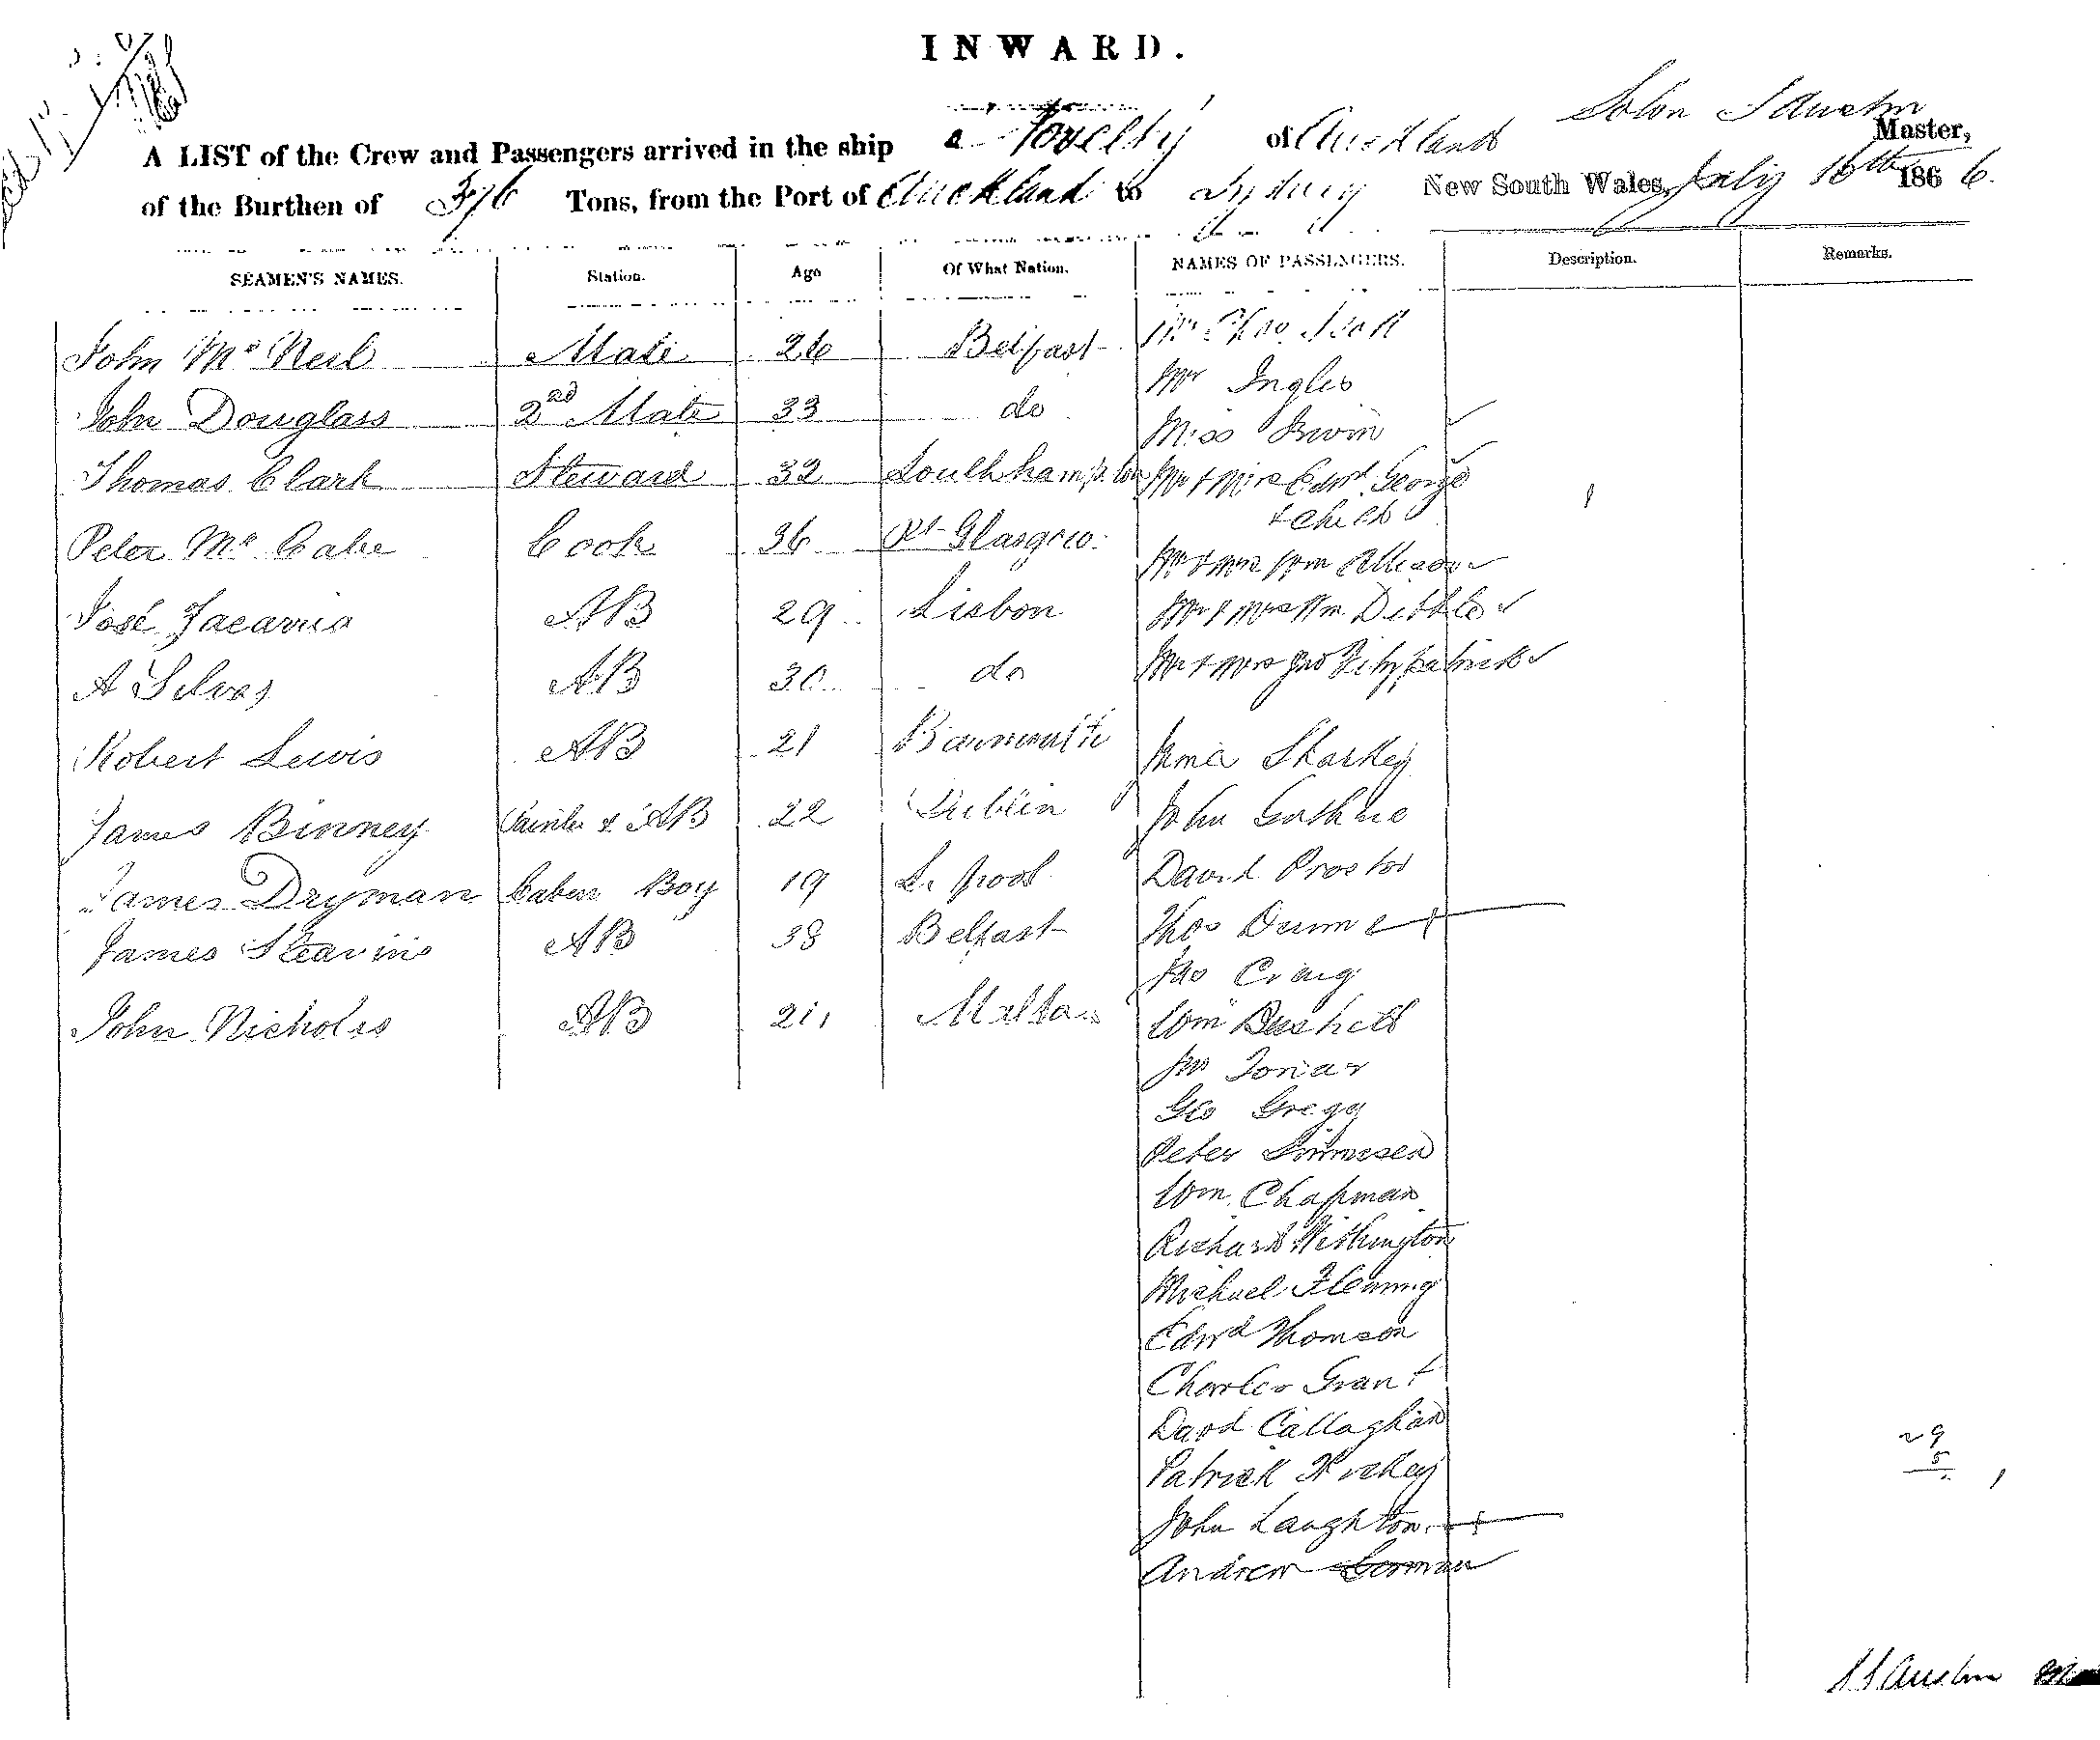 INWARD.
A LIST of the Crew and Passengers arrived in the ship Novelty of Auckland Solon S Austin Master,
of the Burthen of 376 Tons, from the Port of Auckland to Sydney New South Wales, July 16th 1866.
SEAMEN'S NAMES. Station. Age Of What Nation. NAMES OF PASSENGERS. Description. Remarks.
John Mc Neil Mate 26 Belfast
John Douglass 2nd Mate 33 do
Thomas Clark Steward 32 Southhampton
Peter Mc Cabe Cook 36 Pt Glasgow
José Zacaria AB 29 Lisbon
A Silvas AB 30 do
Robert Lewis AB 21 Barmouth
James Binney & AB 22 Dublin
James Dryman Caben Boy 19 L. pool
James Steavins AB 38 Belfast
John Nicholas AB 21 Malta
Mr Thos Scott
Mr Ingles
Miss Irwin
Mr & Mrs Edwd George
& child
Mr & Mrs Wm Allison
Mr & Mrs Wm Dibble
Mr & Mrs Jno Fitzpatrick
Sharkey
John Guthrie
David Proctor
Thos Dunne
Jno Craig
Wm Bushell
Jno
Geo Gregg
Peter
Wm Chapman
Richard Withington
Michael Fleming
Edwd Thomson
Charles Grant
Davd Callaghan
Patrick Hickey
John Laughton
Andrew Gorman
29
5
S S Austin